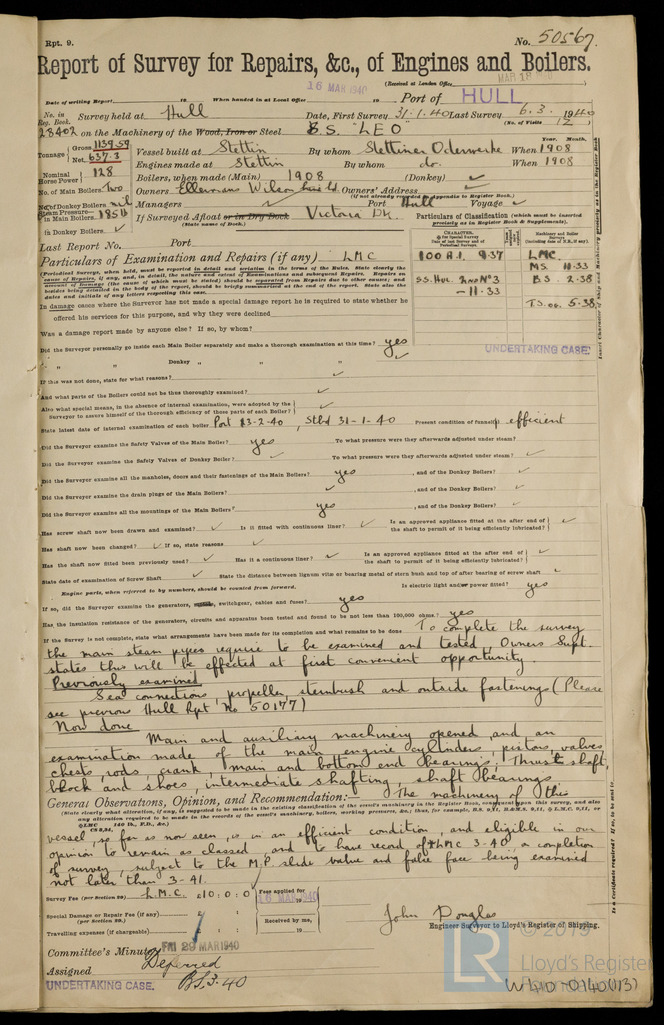 Rpt. 9.
No. 50567.
Report of Survey for Repairs, &c., of Engines and Boilers.
(Received at London Office
MAR 18 1940
Date of writing Report 19 When handed in at Local Office 16 MAR 1940 19 Port of HULL
No. in Reg. Book. Survey held at Hull Date, First Survey 31-1-40 Last Survey 6.3.1940
(No. of Visits 12)
23402 on the Machinery of the Wood, Iron or Steel S.S. "LEO"
Tonnage Gross 1139.59 Net 637.3
Vessel built at Stettin By whom Stettiner Oderwerke When 1908
Year. Month.
Engines made at Stettin By whom do. When 1908
Nominal Horse Power 128
Boilers, when made (Main) 1908 (Donkey) ✓
No. of Main Boilers Two
Owners Ellermans Wilson Line Ld. Owners' Address ✓
(If not already recorded in Appendix to Register Book.)
No. of Donkey Boilers nil
Managers ✓ Port Hull Voyage ✓
Steam Pressure in Main Boilers 185 lb
in Donkey Boilers ✓
If Surveyed Afloat or in Dry Dock Victoria Dk.
(State name of Dock.)
Particulars of Classification (which must be inserted precisely as in Register Book & Supplements).
Last Report No. Port
Particulars of Examination and Repairs (if any) LMC
100 A.1. 9.37 LMC.
MS. 11.33
S.S. Hul. 2nd No 3 B.S. 2.38
- 11.33
T.S. 5.38
UNDERTAKING CASE.
(Periodical Surveys, when held, must be reported in detail and seriatim in the terms of the Rules. State clearly the cause of Repairs, if any, and, in detail, the nature and extent of Examinations and subsequent Repairs.
In damage cases where the Surveyor has not made a special damage report he is required to state whether he
offered his services for this purpose, and why they were declined
Was a damage report made by anyone else? If so, by whom?
Did the Surveyor personally go inside each Main Boiler separately and make a thorough examination at this time? yes
" " Donkey " " " ✓
If this was not done, state for what reasons? ✓
And what parts of the Boilers could not be thus thoroughly examined? ✓
Also what special means, in the absence of internal examination, were adopted by the Surveyor to assure himself of the thorough efficiency of those parts of each Boiler? ✓
State latest date of internal examination of each boiler Port 13-2-40, Stbd 31-1-40 Present condition of funnel(s) efficient
Did the Surveyor examine the Safety Valves of the Main Boiler? yes To what pressure were they afterwards adjusted under steam? ✓
Did the Surveyor examine the Safety Valves of Donkey Boiler? ✓ To what pressure were they afterwards adjusted under steam? ✓
Did the Surveyor examine all the manholes, doors and their fastenings of the Main Boilers? yes, and of the Donkey Boilers? ✓
Did the Surveyor examine the drain plugs of the Main Boilers? ✓, and of the Donkey Boilers? ✓
Did the Surveyor examine all the mountings of the Main Boilers? yes, and of the Donkey Boilers? ✓
Has screw shaft now been drawn and examined? ✓ Is it fitted with continuous liner? ✓ Is an approved appliance fitted at the after end of the shaft to permit of it being efficiently lubricated? ✓
Has shaft now been changed? ✓ If so, state reasons ✓
Has the shaft now fitted been previously used? ✓ Has it a continuous liner? ✓ Is an approved appliance fitted at the after end of the shaft to permit of it being efficiently lubricated? ✓
State date of examination of Screw Shaft ✓ State the distance between lignum vitæ or bearing metal of stern bush and top of after bearing of screw shaft ✓
Engine parts, when referred to by numbers, should be counted from forward. Is electric light and/or power fitted? yes
If so, did the Surveyor examine the generators, switchgear, cables and fuses? yes
Has the insulation resistance of the generators, circuits and apparatus been tested and found to be not less than 100,000 ohms? yes
If the Survey is not complete, state what arrangements have been made for its completion and what remains to be done To complete the survey
the main steam pipes require to be examined and tested. Owners Supt.
states this will be effected at first convenient opportunity.
Previously examined
Sea connections, propeller, sternbush and outside fastenings (Please
see previous Hull Rpt No 50177)
Now done
Main and auxiliary machinery opened and an
examination made of the main engine cylinders, pistons, valves,
chests, rods, crank, main and bottom end bearings, Thrust shaft,
block and shoes, intermediate shafting, shaft bearings
General Observations, Opinion, and Recommendation:- The machinery of this
vessel, so far as now seen, is in an efficient condition, and eligible in our
opinion to remain as classed, and to have record of LMC 3-40, a completion
of survey, subject to the M.P. slide valve and false face being examined
not later than 3-41.
Survey Fee (per Section 29) L.M.C. £10:0:0 Fees applied for 16 MAR 1940
Special Damage or Repair Fee (if any) (per Section 29.)
Received by me,
Travelling expenses (if chargeable)
John Douglas
Engineer Surveyor to Lloyd's Register of Shipping.
Committee's Minute FRI 29 MAR 1940
Assigned Deferred
BS. 3.40
UNDERTAKING CASE.
© 2019
LR
Lloyd's Register
W410-0140(13)